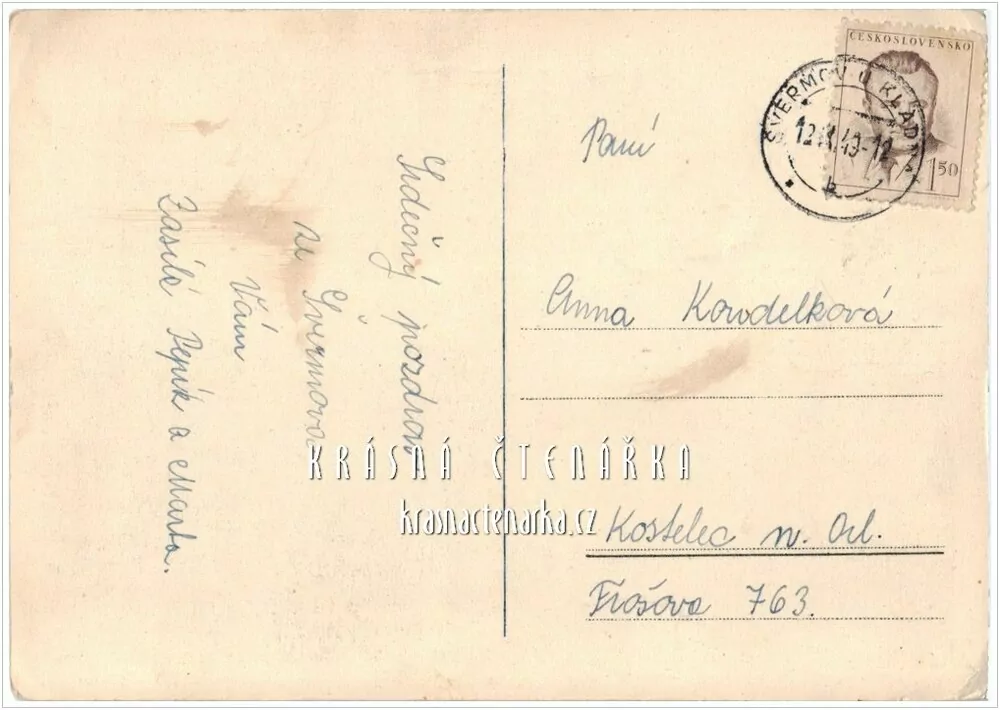 Srdečný pozdrav
ze Švermova
Vám
Zasílá Pepík a Marta.
ČESKOSLOVENSKO
1,50
ŠVERMOV U KLADNA
b
Paní
Anna Koudelková
Kostelec n. Orl.
763.
KRÁSNÁ ČTENÁŘKA
krasnactenarka.cz